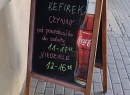 KEFIREK
CZYNNY
od poniedziałku
do soboty
11-17
NIEDZIELE
12-16